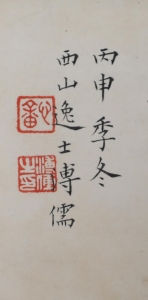 丙申季冬
西山逸士溥儒